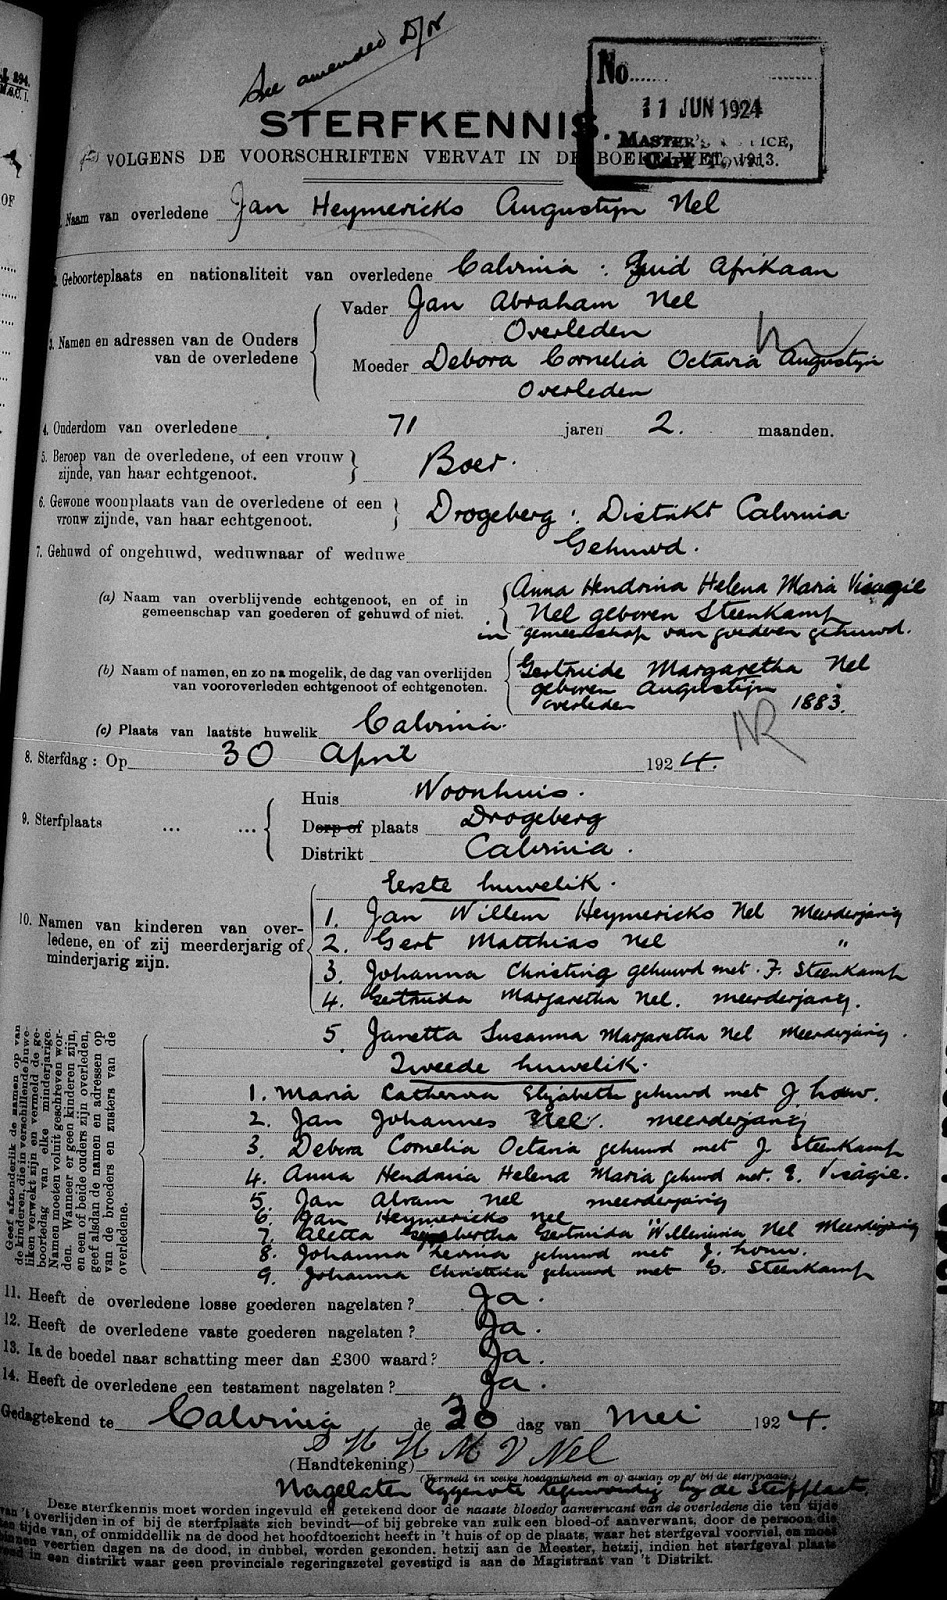 See amended D/N
No.
11 JUN 1924
MASTER'S OFFICE,
CAPE TOWN.
STERFKENNIS.
VOLGENS DE VOORSCHRIFTEN VERVAT IN DE BOEDELWET, 1913.
Naam van overledene Jan Heymericks Augustyn Nel
Geboorteplaats en nationaliteit van overledene Calvinia : Zuid Afrikaan
3. Namen en adressen van de Ouders van de overledene
Vader Jan Abraham Nel
Overleden
Moeder Debora Cornelia Octavia Augustyn
Overleden
4. Ouderdom van overledene 71 jaren 2. maanden.
5. Beroep van de overledene, of een vrouw zijnde, van haar echtgenoot. Boer.
6. Gewone woonplaats van de overledene of een vrouw zijnde, van haar echtgenoot. Drogeberg : Distrikt Calvinia
7. Gehuwd of ongehuwd, weduwnaar of weduwe Gehuwd.
(a) Naam van overblijvende echtgenoot, en of in gemeenschap van goederen of gehuwd of niet.
Anna Hendrina Helena Maria Visagie
Nel geboren Steenkamp
in gemeenschap van goederen gehuwd.
(b) Naam of namen, en zo na mogelik, de dag van overlijden van vooroverleden echtgenoot of echtgenoten.
Gertruide Margaretha Nel
geboren Augustijn
overleden 1883.
(c) Plaats van laatste huwelik Calvinia.
NR
8. Sterfdag : Op 30 April 1924.
9. Sterfplaats ... ...
Huis Woonhuis.
Dorp of plaats Drogeberg
Distrikt Calvinia.
Eerste huwelik.
10. Namen van kinderen van overledene, en of zij meerderjarig of minderjarig zijn.
1. Jan Willem Heymericks Nel meerderjarig
2. Gert Matthias Nel "
3. Johanna Christina gehuwd met F. Steenkamp
4. Gertruida Margaretha Nel. meerderjarig.
5. Janetta Susanna Margaretha Nel meerderjarig.
Zweede huwelik.
1. Maria Catherina Elizabeth gehuwd met J. Louw.
2. Jan Johannes Nel. meerderjarig
3. Debora Cornelia Octavia gehuwd met J. Steenkamp
4. Anna Hendrina Helena Maria gehuwd met. E. Visagie.
5. Jan Abram Nel meerderjarig
6. Jan Heymericks Nel "
7. Aletta Gertruida Willemina Nel Meerderjarig
8. Johanna Levina gehuwd met J. Louw.
9. Johanna Christina gehuwd met G. Steenkamp
Geef afzonderlik de namen op van
de kinderen, die in verschillende huwe-
liken verwekt zijn en vermeld de ge-
boortedag van elke minderjarige.
Namen moeten voluit geschreven wor-
den. Wanneer er geen kinderen zijn,
en een of beide ouders zijn overleden,
geef alsdan de namen en adressen op
van de broeders en zusters van de
overledene.
11. Heeft de overledene losse goederen nagelaten? Ja.
12. Heeft de overledene vaste goederen nagelaten? Ja.
13. Is de boedel naar schatting meer dan £300 waard? Ja.
14. Heeft de overledene een testament nagelaten? Ja.
Gedagtekend te Calvinia de 30 dag van Mei 1924.
(Handtekening) A H H M V Nel
(Vermeld in welke hoedanigheid en of aldan op of bij de sterfplaats.)
Nagelaten Eggenote tegenwoordig by de Sterfplaats.
Deze sterfkennis moet worden ingevuld en getekend door de naaste bloedof aanverwant van de overledene die ten tijde
van 't overlijden in of bij de sterfplaats zich bevindt—of bij gebreke van zulk een bloed-of aanverwant, door de persoon die
ten tijde van, of onmiddellik na de dood het hoofdtoezicht heeft in 't huis of op de plaats, waar het sterfgeval voorviel, en moet
binnen veertien dagen na de dood, in dubbel, worden gezonden, hetzij aan de Meester, hetzij, indien het sterfgeval plaats
vond in een distrikt waar geen provinciale regeringszetel gevestigd is aan de Magistraat van 't Distrikt.